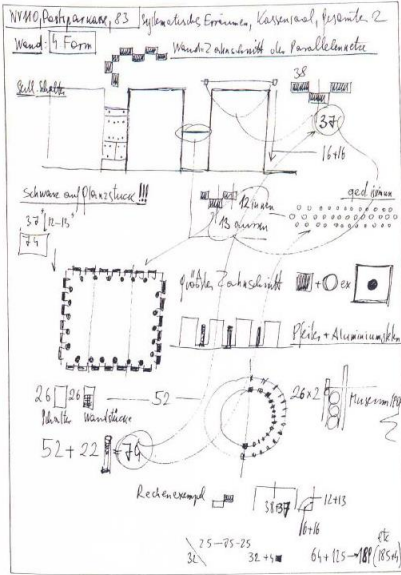 NV110, Postsparkasse, 83 Systematisches Erräumen, Kassensaal, Gesamter 2
Wand: 4 Form
Wand: Zahnschnitt des Parallelennetzes
38
37
16+16
schwarz auf Glanzstuck!!!
12 innen
13 aussen
37 12-13
74
größter Zahnschnitt + ex
Pfeiler + Aluminiumstelen
26 26 52
Schalter Wandstücke
26x2 Museum
52 + 22 = 74
Rechenexempel
38+37 12+13
16+16
25-25-25
32 32+4
64+125 189 (185+4)
etc